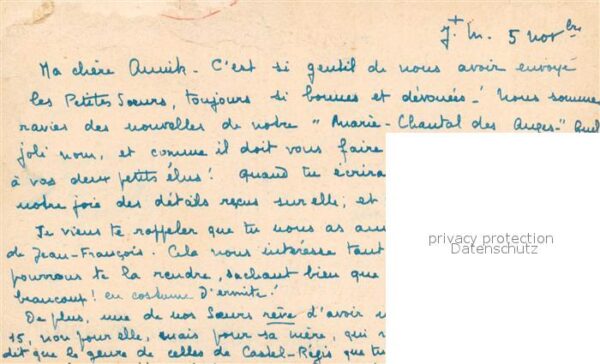 J.+ M. 5 novbre
Ma chère Annik - C'est si gentil de nous avoir envoyé
les Petites Sœurs, toujours si bonnes et dévouées ! Nous sommes
ravies des nouvelles de notre "Marie-Chantal des Anges" Quel
joli nom, et comme il doit vous faire
à vos deux petits élus ! Quand tu écrira
notre joie des détails reçus sur elle ; et
Je viens te rappeler que tu nous as
de Jean-François. Cela nous intéresse tant
pourrons te la rendre, sachant bien que
beaucoup ! en costume d'ermite !
De plus, une de nos Sœurs rêve d'avoir
15, non pour elle, mais pour sa mère, qui
dit que le genre de celles de Castel-Régis que tu
privacy protection
Datenschutz